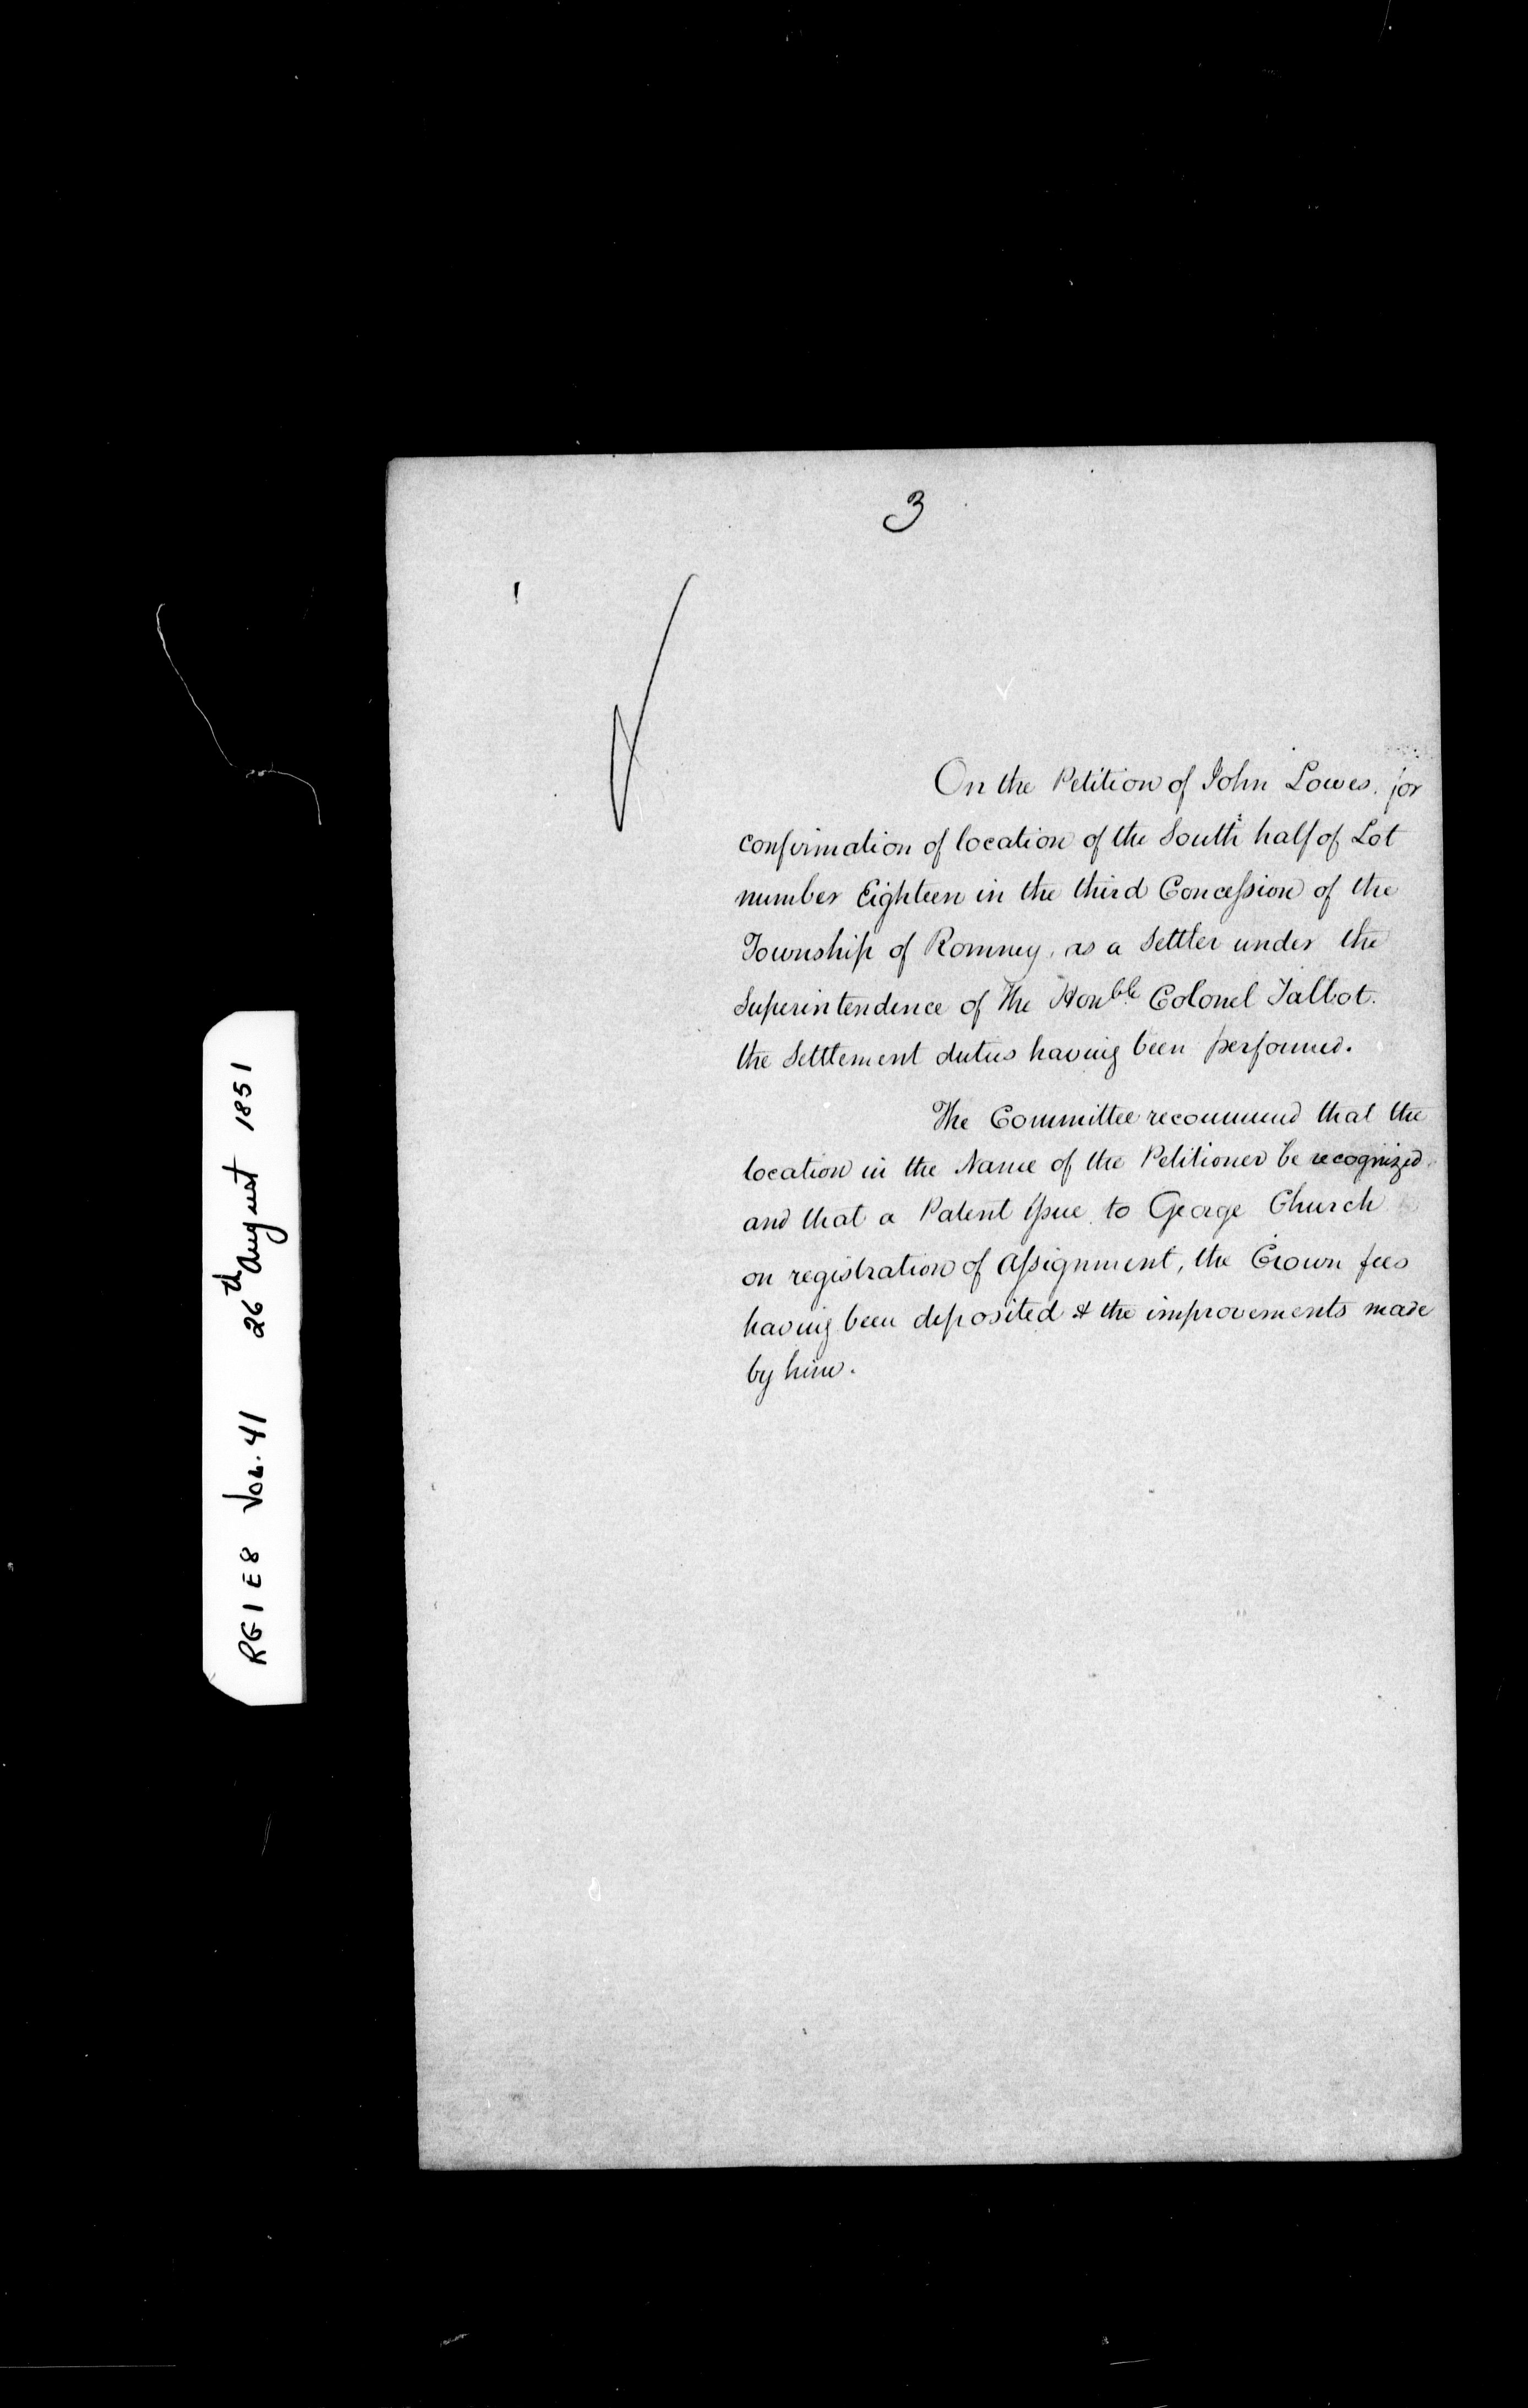 3
On the Petition of John Lowes. for
confirmation of location of the South half of Lot
number Eighteen in the third Concession of the
Township of Romney, as a Settler under the
Superintendence of The Honble Colonel Talbot.
the Settlement duties having been performed.
The Committee recommend that the
location in the Name of the Petitioner be recognized
and that a Patent Issue to George Church
on registration of Assignment, the Crown fees
having been deposited & the improvements made
by him.
RG1 E8 Vol. 41 26th August 1851